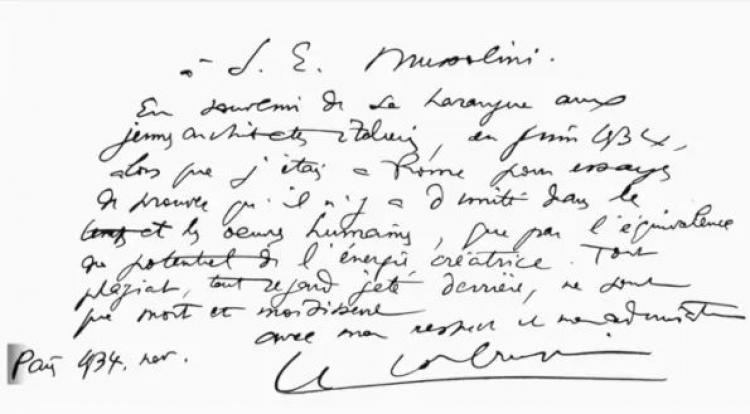 à S. E. Mussolini.
En souvenir de sa harangue aux
jeunes architectes italiens, en juin 1934,
alors que j'étais à Rome pour essayer
de prouver qu'il n'y a d'unité dans le
temps et les oeuvres humaines, que par l'équivalence
du potentiel de l'énergie créatrice. Tout
plagiat, tout regard jeté derrière, ne sont
que mort et moisissure
avec mon respect et mon admiration
Paris 1934. nov.
Le Corbusier